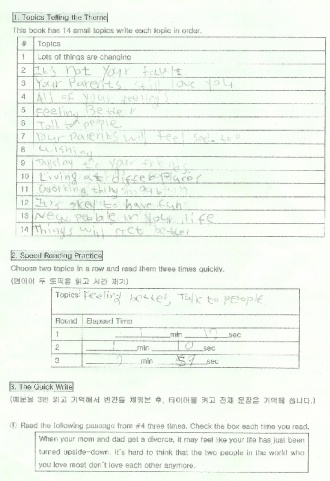 1. Topics Telling the Theme
This book has 14 small topics write each topic in order.
# Topics
1 Lots of things are changing
2 It's not your fault
3 Your Parents still love you
4 All of your feelings
5 Feeling Better
6 Talk to people
7 Your parents will feel
8 Wishing
9 your friends
10 Living at differet places
11 Working things out
12 It's okay to have fun
13 New people in your life
14 Things will get better
2. Speed Reading Practice
Choose two topics in a row and read them three times quickly.
토픽을 읽고 시간 재기)
Topics: Feeling better, Talk to people
Round Elapsed Time
1 1 min 17 sec
2 1 min 10 sec
3 min 59 sec
3. The Quick Write
3번 읽고 기억해서 빈칸을 채워본 후, 타이머를 켜고 전체 문장을 기억해 씁니다.)
① Read the following passage from #4 three times. Check the box each time you read.
When your mom and dad get a divorce, it may feel like your life has just been
turned upside-down. It's hard to think that the two people in the world who
you love most don't love each other anymore.